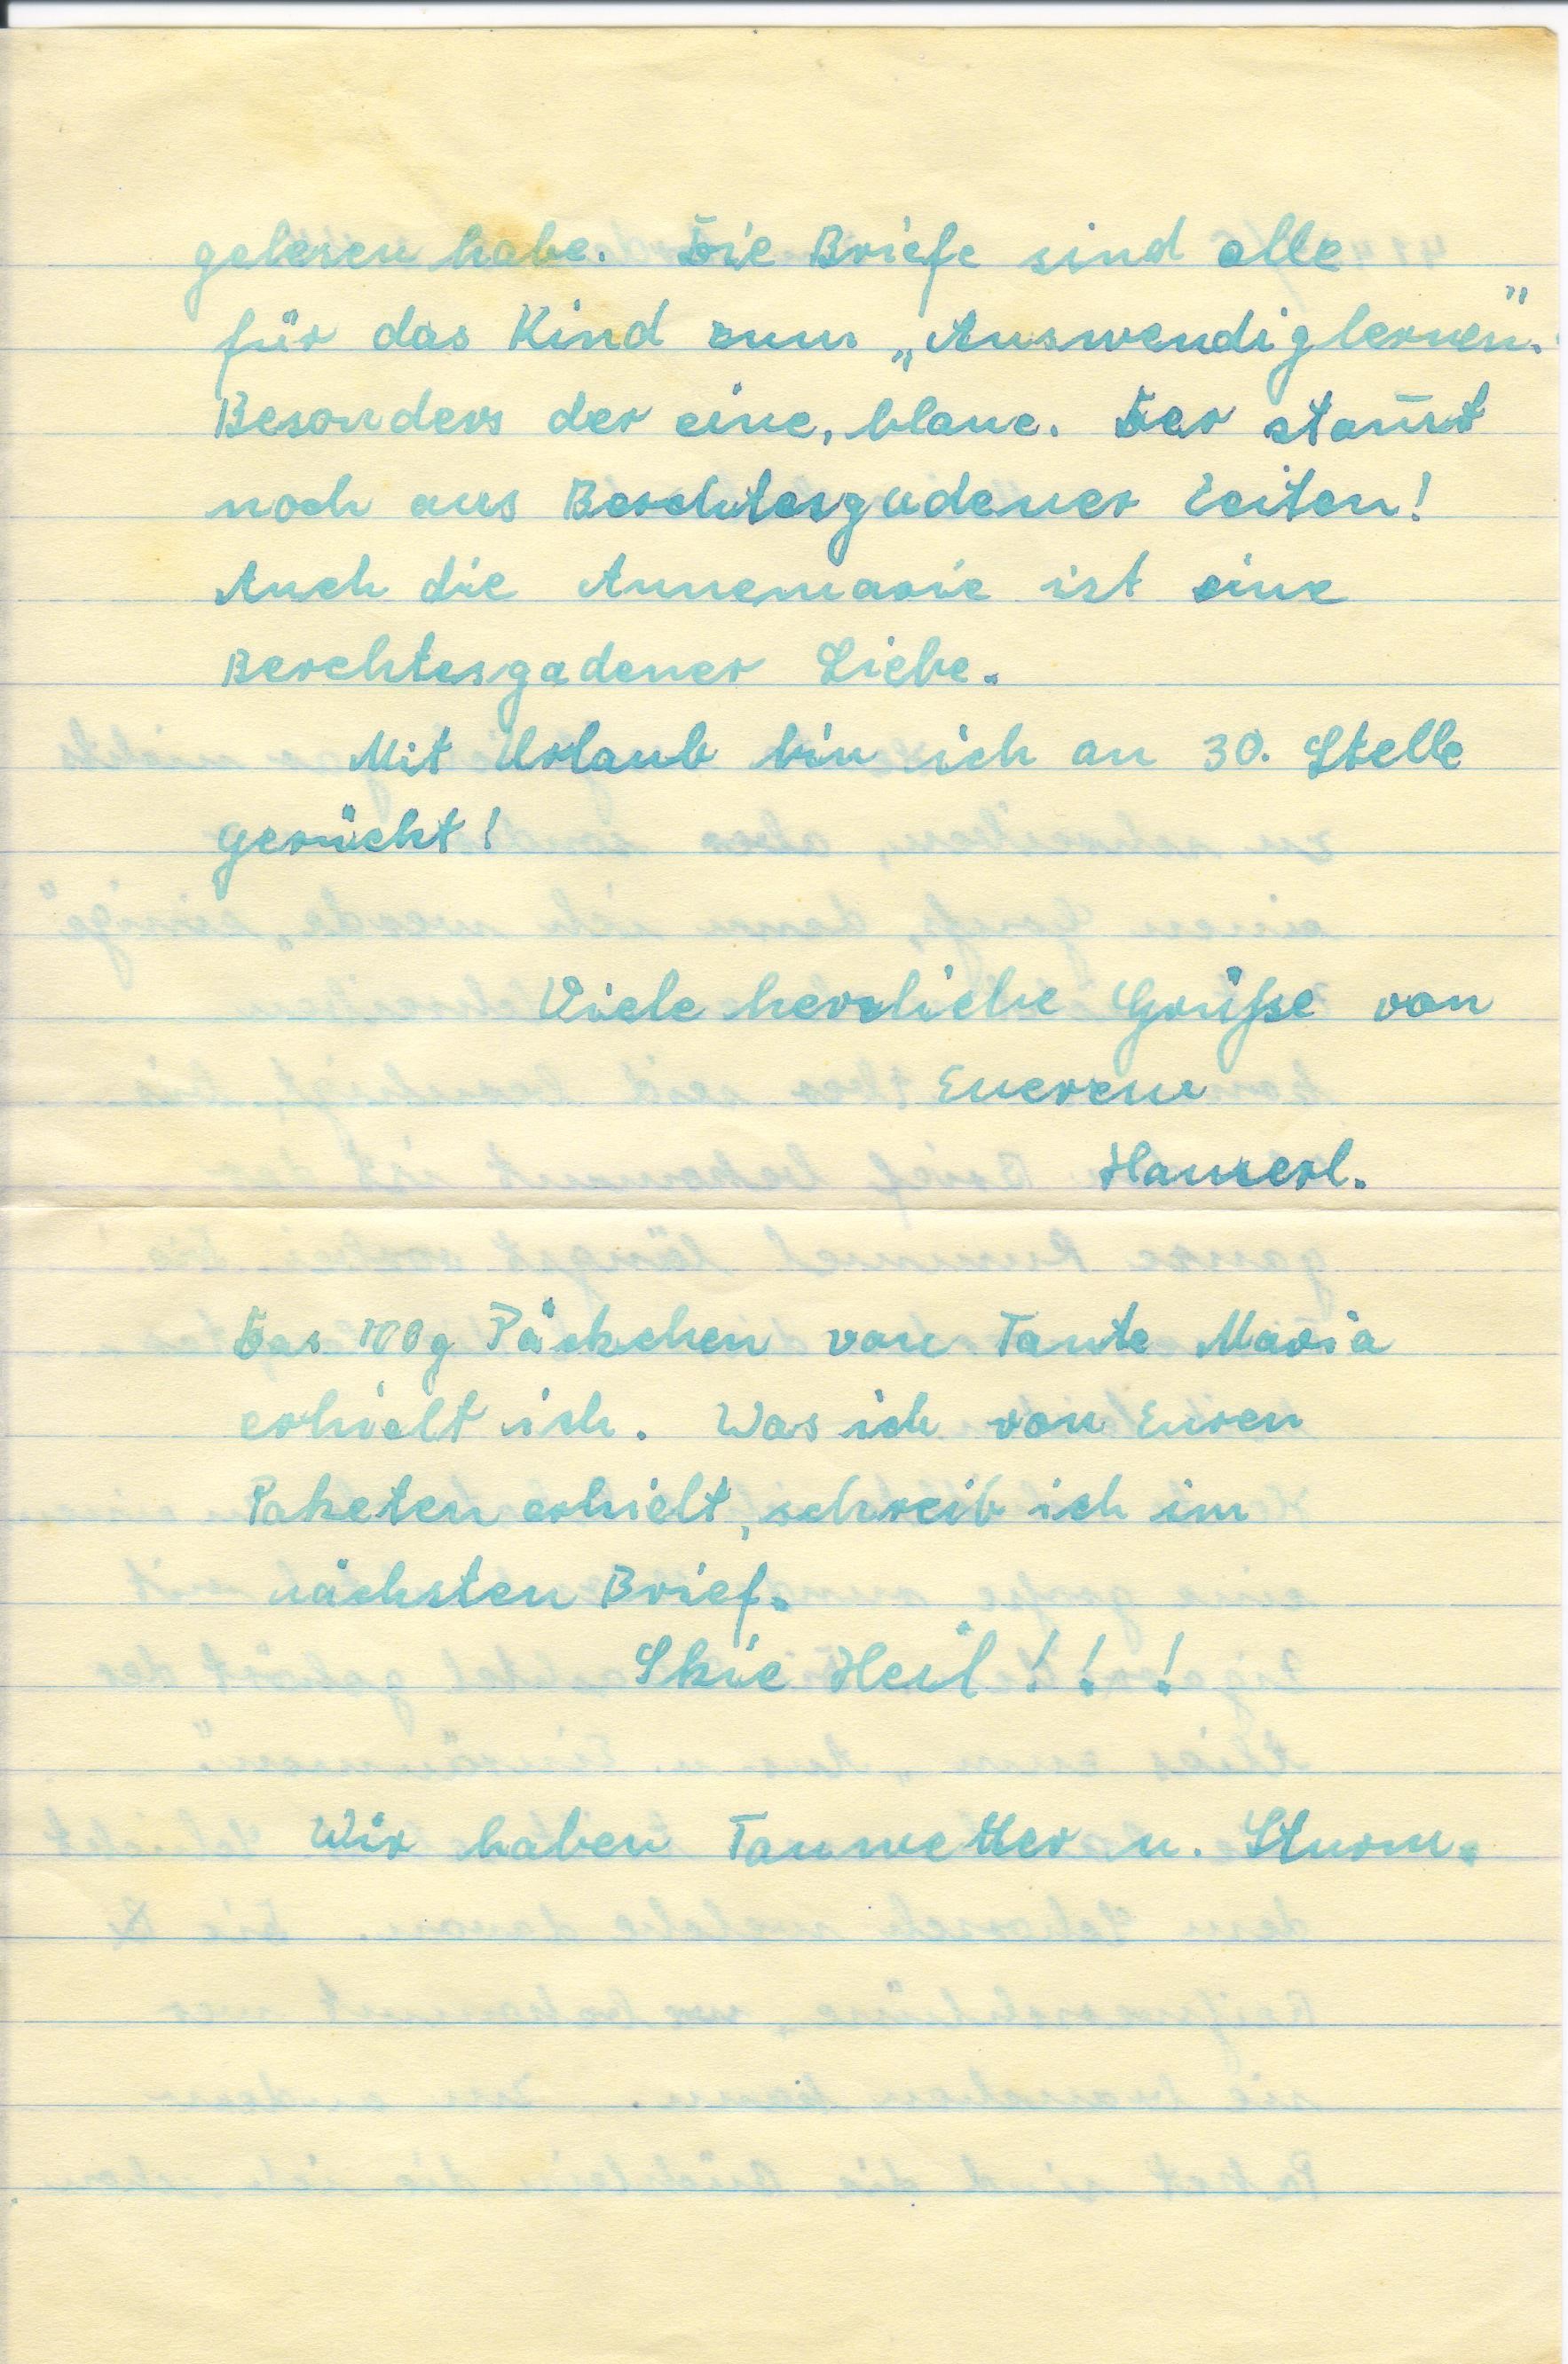 gelesen habe. Die Briefe sind alle
für das Kind zum „Auswendiglernen".
Besonders der eine, blaue. Der stam̄t
noch aus Berchtesgadener Zeiten!
Auch die Annemarie ist eine
Berchtesgadener Liebe.
Mit Urlaub bin ich an 30. Stelle
gerückt!
Viele herzliche Grüße von
Euerem
Hanserl.
Das 100g Päckchen von Tante Maria
erhielt ich. Was ich von Euren
Paketen erhielt, schreib ich im
nächsten Brief.
Skie Heil!!!
Wir haben Tauwetter u. Sturm.